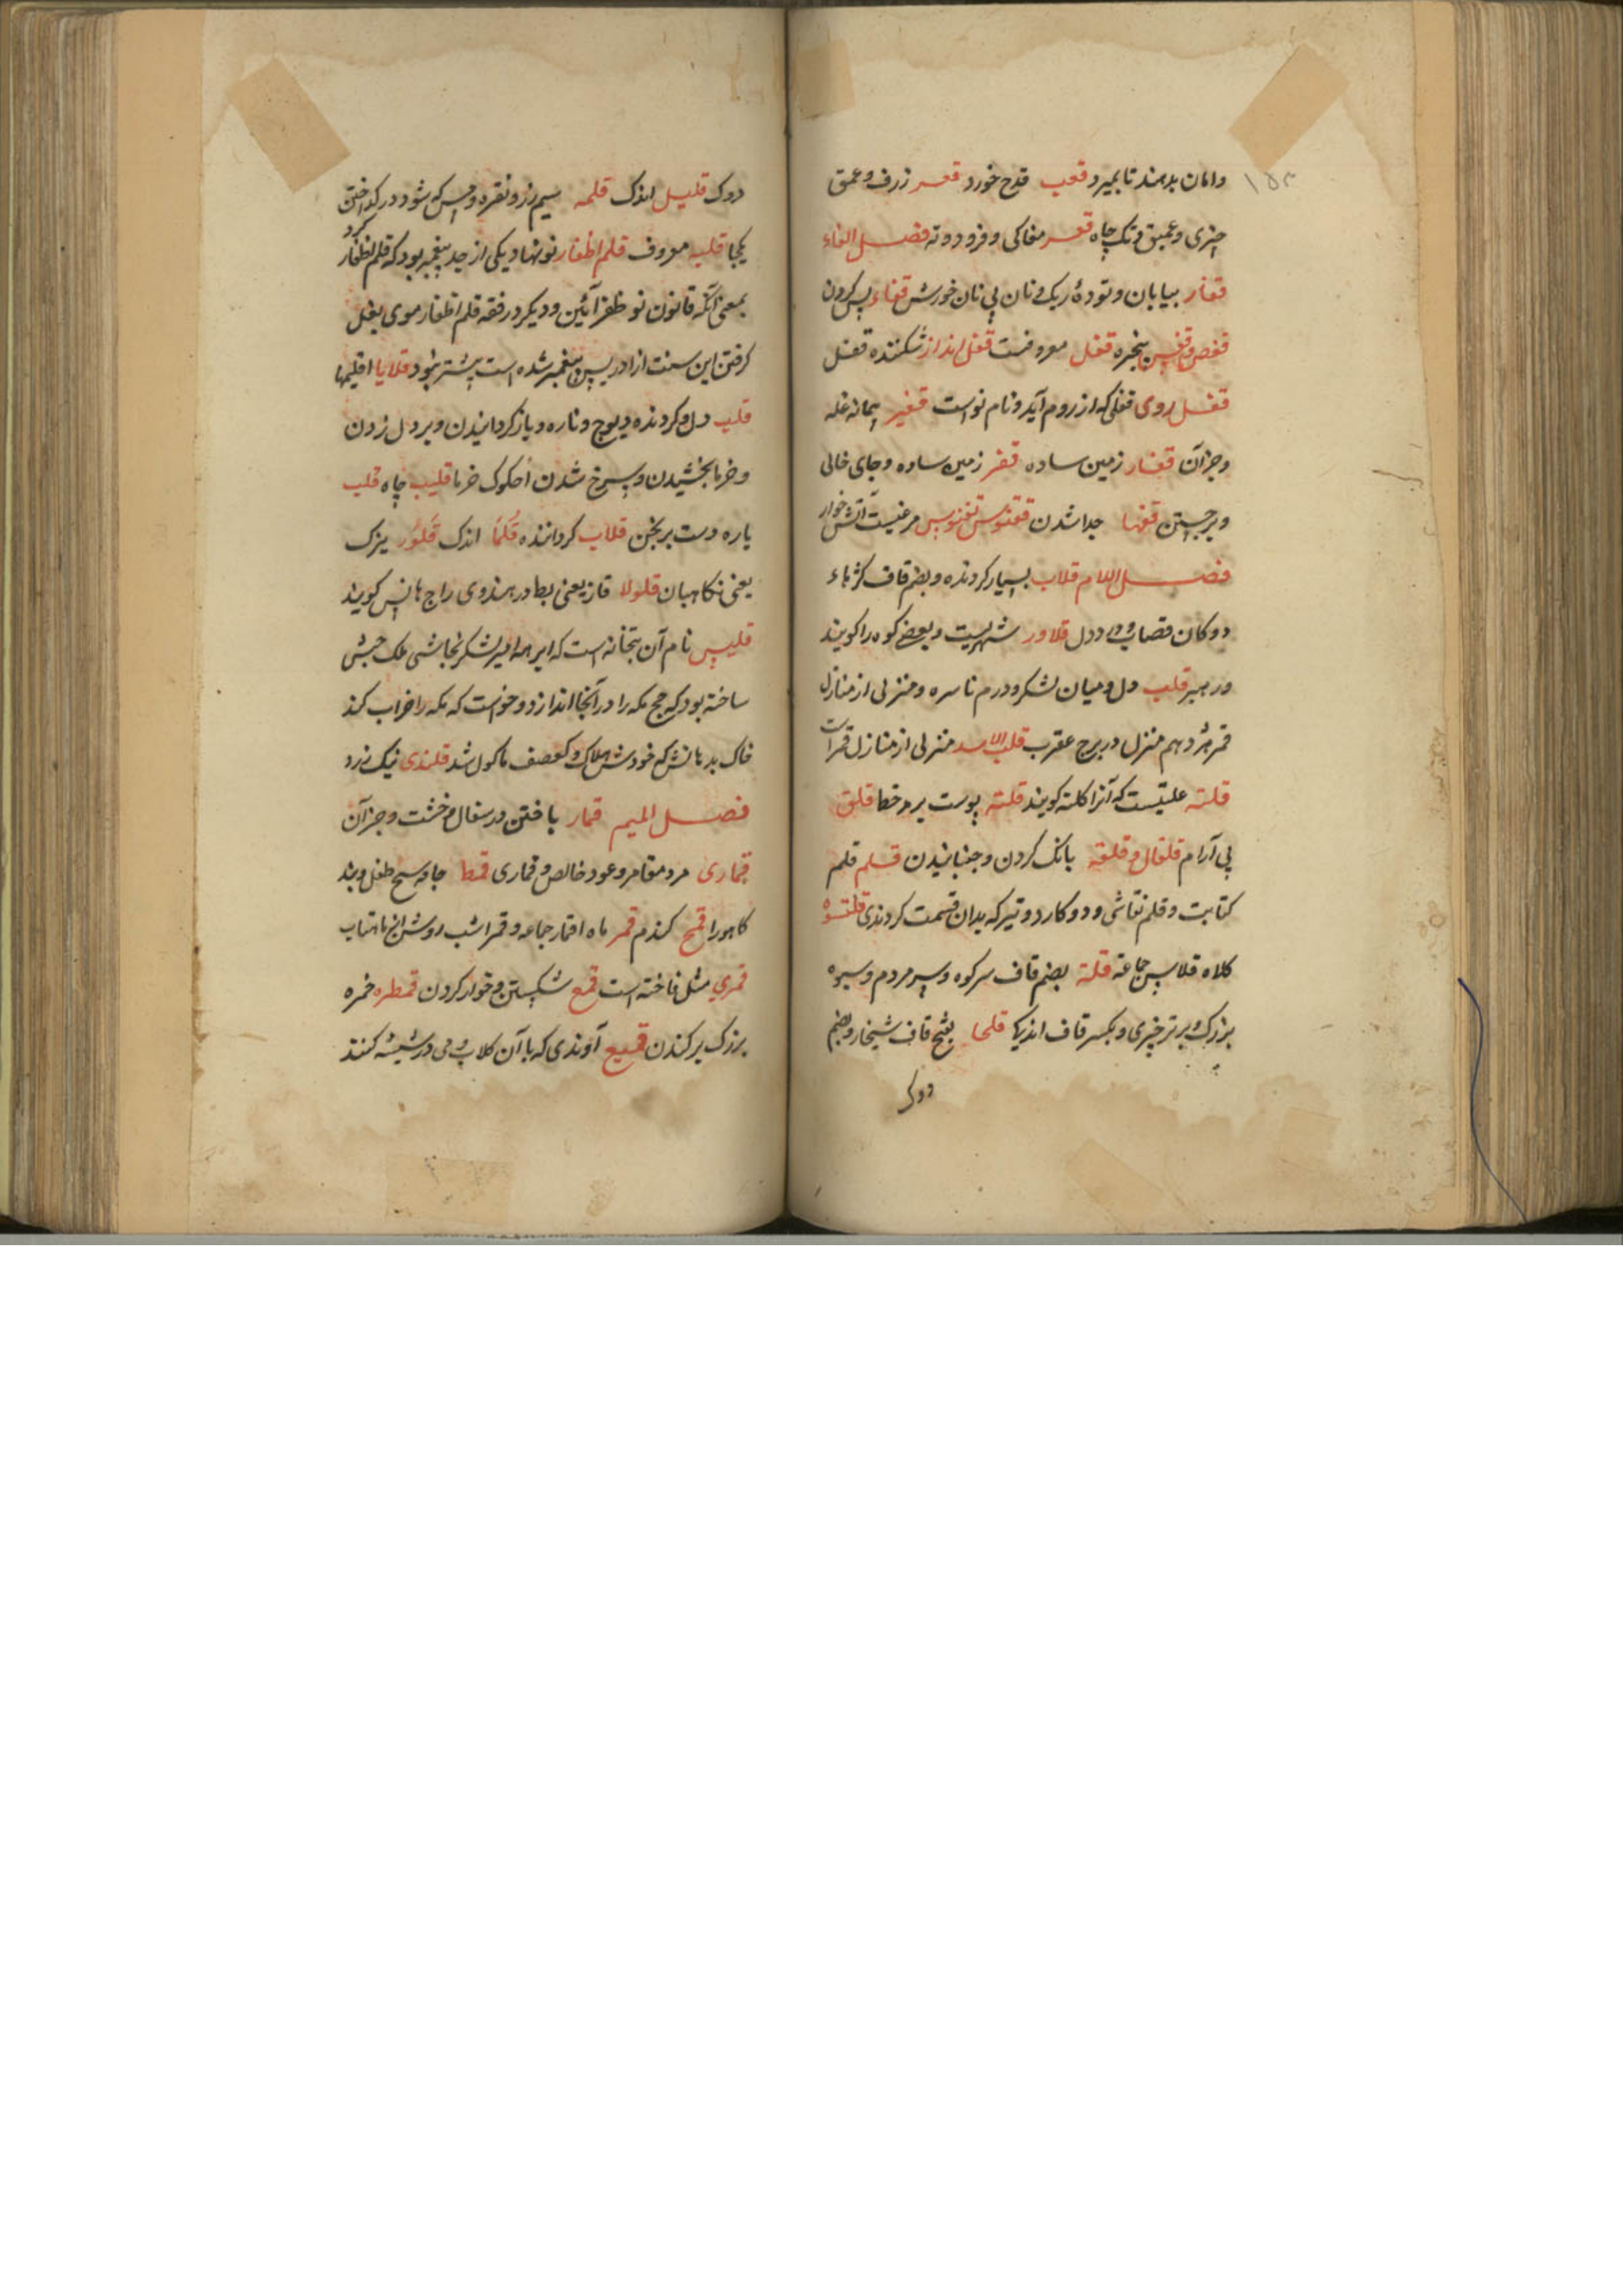 ۱۵۳
وامان بدهند تا بمیرد قعب قدح خورد قعر زرف و عمق
چیزی و عمیق و تک چاه قعر مغاکی و فرودوته فصل الفاء
قفار بیابان و تودهٔ ریک و نان بی نان خورش قفاء پس کردن
قفص و قفس پنجره قفل معروفست قفل انداز شکننده قفل
قفل رومی قفلی که از روم آید و نام نواست قفیر پیمانه غله
وجز آن قفار زمین ساده قفر زمین ساده وجای خالی
و برجستن قفها جدا شدن ققنوس تفنوس مرغیست آتش خوار
فصل اللام قلاب بسیار کردنده و بضم قاف کژهاء
دوکان قصاب و درد دل قلاور شهریست و بعضی کوه را کویند
ورهبر قلب دل و میان لشکر و درم ناسره و منزلی از منازل
قمر هژدهم منزل در برج عقرب قلب الاسد منزلی از منازل قمراست
قلته علتیست که آنرا کلته کویند قلته پوست بر مرخطا قلق
بی آرام قلقال و قلقه بانک کردن و جنبانیدن قلم قلم
کتابت و قلم نقاشی و دو کارد و تیر که بدان قسمت کردندی قلنسوه
کلاه قلاس جماعة قلة بضم قاف سر کوه و سر مردم و سبوه
بزرک و برتر چیزی و بکسر قاف اندیک قلحا بفتح قاف شیخار و بضم
دوک
دوک قلیل اندک قلمه سیم و زر و نقره و مس که شود در کداختن
یکجا کرد قلیه معروف قلم اظفار نو نهاد یکی از جد پیغمبر بود که قلم اظفار
بمعنی آنکه قانون نو ظفر آئین و دیکر در فقه قلم اظفار موی بغل
کرفتن این سنت از ادریس پیغمبر شده است پیشتر نبود قلایا اقلیمها
قلب دل و کردنده و پوچ و ناره و باز کردانیدن و بر دل زدن
و خرما بخشیدن و سرخ شدن اخکوک خرما قلیب چاه قلب
یاره دست برنجن قلاب کرداننده قلما اندک قلور یزک
یعنی نکاهبان قلولا قاز یعنی بط و در هندوی راج هانس کویند
قلیس نام آن بتخانه است که ابرهه امیر لشکر نجاشی ملک حبش
ساخته بود که حج مکه را در آنجا اندازد و خواست که مکه را خراب کند
خاک بدهانش که خودش هلاک و کعصف ماکول شد قلندی نیک زرد
فصل المیم قمار باختن در سفال و خشت و جز آن
قماری مرد مقامر و عود خالص و قماری قمط جامه طفل و بند
کاهورا قمح کندم قمر ماه اقمار جماعه و قمرا شب روشن از ماهتاب
قمری مثل فاخته است قمع شکستن و خوار کردن قمطره خمره
بزرک بر کندن قمیع آوندی که با آن کلاب و می در شیشه کنند